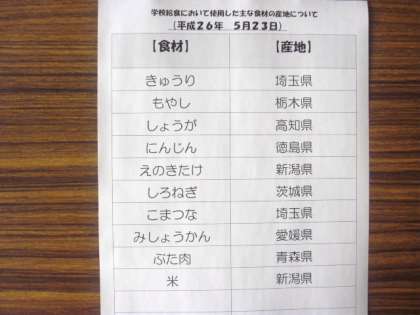 学校給食において使用した主な食材の産地について
（平成２６年　５月２３日）
【食材】 【産地】
きゅうり 埼玉県
もやし 栃木県
しょうが 高知県
にんじん 徳島県
えのきたけ 新潟県
しろねぎ 茨城県
こまつな 埼玉県
みしょうかん 愛媛県
ぶた肉 青森県
米 新潟県